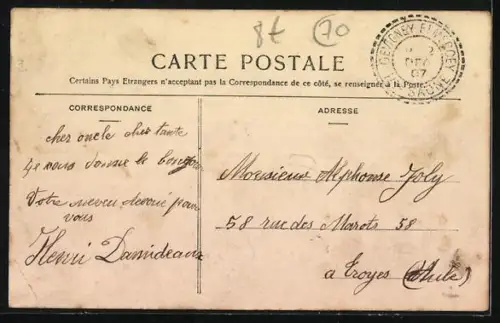 8f 70
CARTE POSTALE
Certains Pays Etrangers n'acceptant pas la Correspondance de ce côté, se renseigner à la Poste.
GEVIGNEY ET MERCEY
DEC
07
Hte SAONE
CORRESPONDANCE
cher oncle cher tante
Je vous donne le bonjour
Votre neveu dévoué pour
vous
Henri Damideaux
ADRESSE
Monsieur Alphonse Joly
58 rue des Marots 58
a Troyes (Aube)